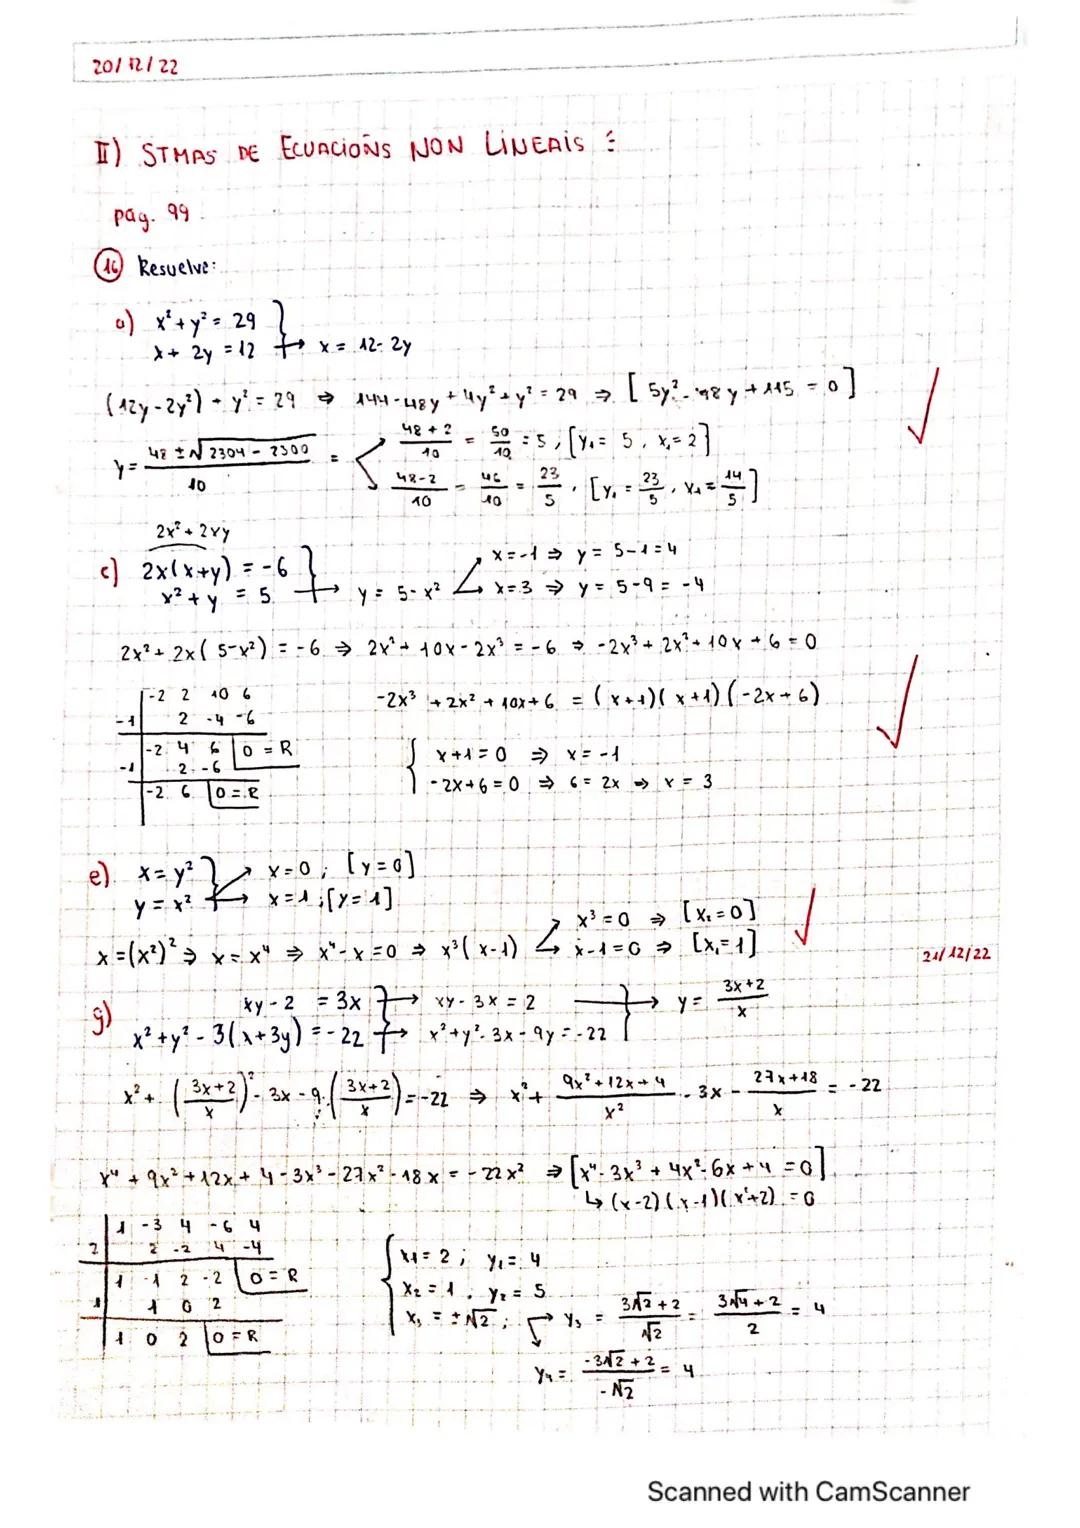 20/12/22
II) STMAS DE ECUACIÓNS NON LINEAIS :
pag. 99
16 Resuelve:
a) x² + y² = 29
x + 2y = 12 → x = 12 - 2y
(12y - 2y²) + y² = 29 ⇒ 144 - 48y + 4y² + y² = 29 ⇒ [5y² - 48y + 115 = 0]
y = (48 ± √(2304 - 2300))/10 = (48 + 2)/10 = 50/10 = 5, [y₁ = 5, x₁ = 2]
(48 - 2)/10 = 46/10 = 23/5, [y₁ = 23/5, x₁ = 14/5]
2x² + 2xy
c) 2x(x+y) = -6
x² + y = 5 → y = 5 - x²
x = -1 ⇒ y = 5 - 1 = 4
x = 3 ⇒ y = 5 - 9 = -4
2x² + 2x(5 - x²) = -6 ⇒ 2x² + 10x - 2x³ = -6 ⇒ -2x³ + 2x² + 10x + 6 = 0
-2 2 10 6
-1 2 -4 -6
-2 4 6 0 = R
-1 2 -6
-2 6 0 = R
-2x³ + 2x² + 10x + 6 = (x+1)(x+1)(-2x+6)
x + 1 = 0 ⇒ x = -1
-2x + 6 = 0 ⇒ 6 = 2x ⇒ x = 3
e) x = y² → x = 0; [y = 0]
y = x² → x = 1; [y = 1]
x = (x²)² ⇒ x = x⁴ ⇒ x⁴ - x = 0 ⇒ x³(x-1)
x³ = 0 ⇒ [x₁ = 0]
x - 1 = 0 ⇒ [x₁ = 1]
21/12/22
g) xy - 2 = 3x → xy - 3x = 2 → y = (3x+2)/x
x² + y² - 3(x+3y) = -22 → x² + y² - 3x - 9y = -22
x² + ((3x+2)/x)² - 3x - 9·((3x+2)/x) = -22 ⇒ x² + (9x² + 12x + 4)/x² - 3x - (27x+18)/x = -22
x⁴ + 9x² + 12x + 4 - 3x³ - 27x² - 18x = -22x² ⇒ [x⁴ - 3x³ + 4x² - 6x + 4 = 0]
↳ (x-2)(x-1)(x²+2) = 0
1 -3 4 -6 4
2 2 -2 4 -4
1 -1 2 -2 0 = R
1 1 0 2
1 0 2 0 = R
x₁ = 2; y₁ = 4
x₂ = 1, y₂ = 5
x₃ = ±√2; → y₃ = (3√2 + 2)/√2 = (3√4 + 2)/2 = 4
y₄ = (-3√2 + 2)/-√2 = 4
Scanned with CamScanner